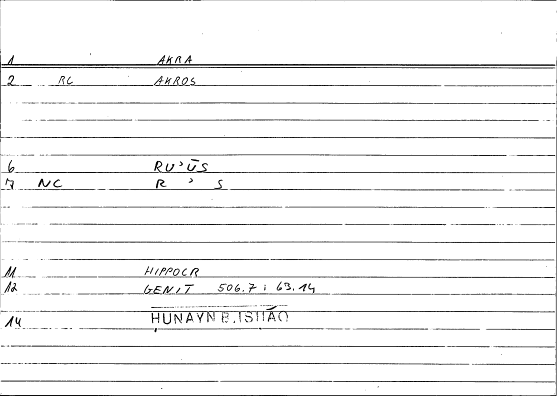 1 AKRA
2 RC AKROS
6 RUʾŪS
7 NC R ʾ S
11 HIPPOCR
12 GENIT 506.7 ; 63.14
14 ḤUNAYN B. ISḤĀQ